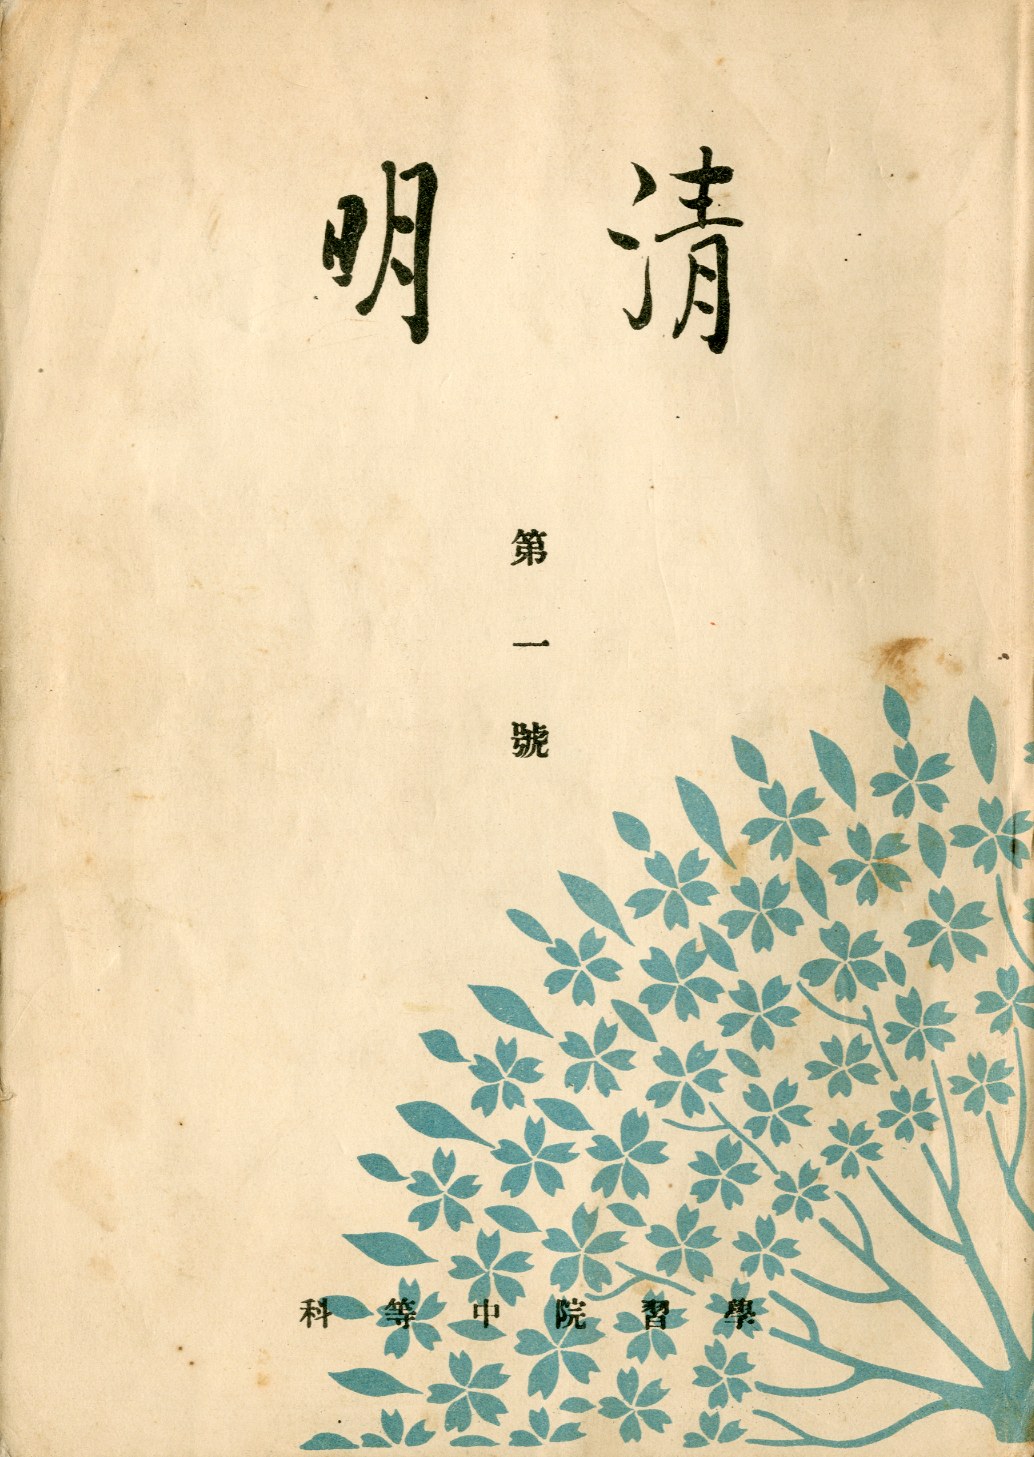 清明
第一號
學習院中等科